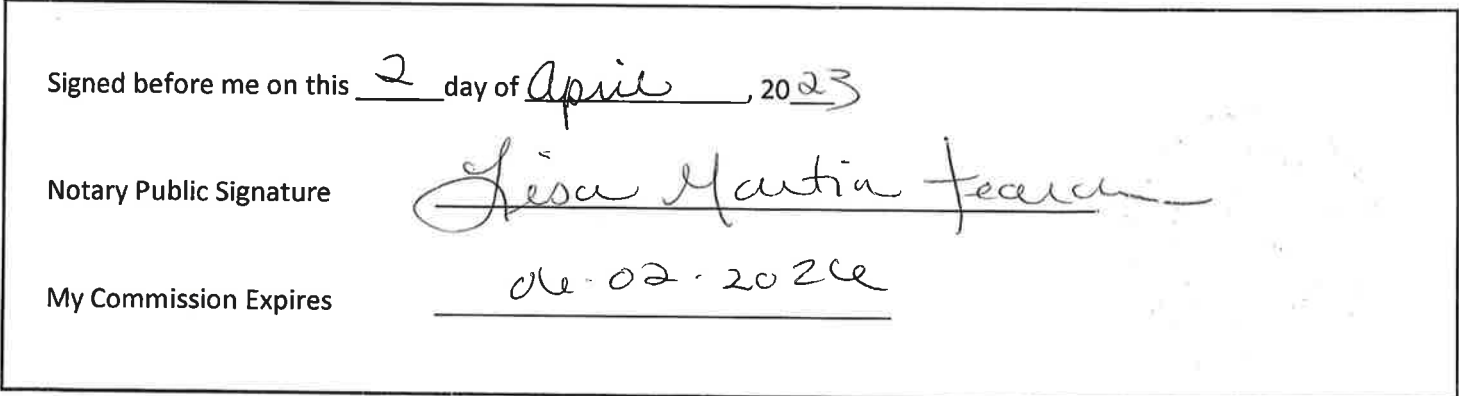 Signed before me on this 2 day of April, 2023
Notary Public Signature Lisa Martin
My Commission Expires 06.02.2026